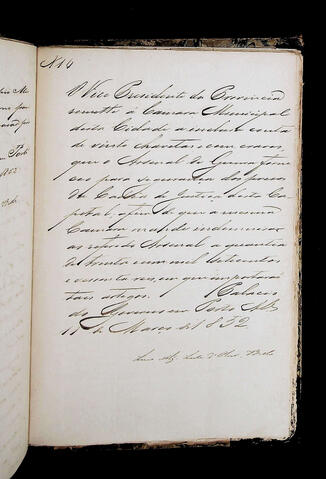 N 16
O Vice Presidente da Provincia
remette á Camara Municipal
desta Cidade a inclusa conta
de vinte chavetas com
que o Arsenal de Guerra forne
ceo para segurança dos presos
da Cadêa de Justiça desta Ca
pital, afim de que a mesma
Camara mande indemnisar
ao referido Arsenal a quantia
de trinta e um mil setecentos
e sessenta reis, em que importarão
taes artigos. Palacio
do Governo em Porto
11 de Março de 1852
Luis Alz Leite d'Oliv. Bello